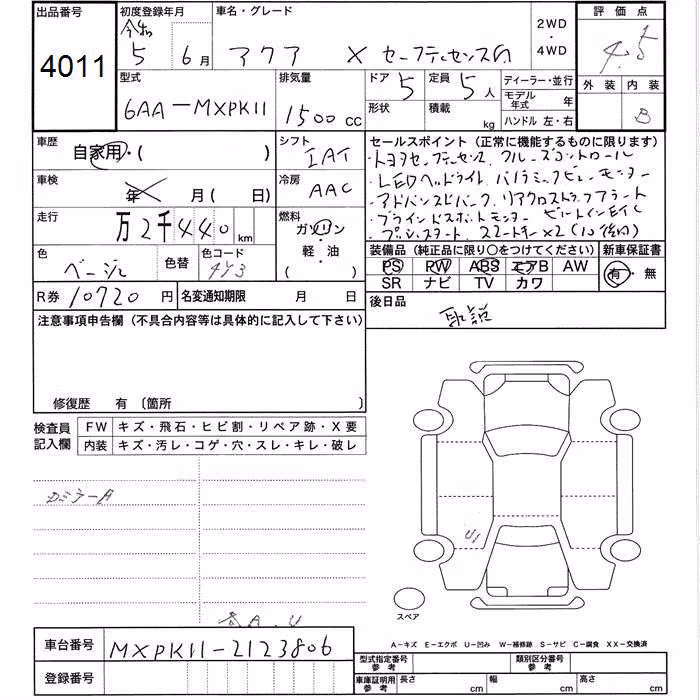 出品番号 初度登録年月 車名・グレード 評価点
4011 令和 5 6月 アクア X セーフティセンスG 2WD・4WD 4.5
型式 排気量 ドア 定員 ディーラー・並行 外装 内装
6AA-MXPK11 1500cc 5 5人 モデル年式 年 B
形状 積載 kg ハンドル 左・右
車歴 自家用・( ) シフト IAT
セールスポイント (正常に機能するものに限ります)
・トヨタセーフティセンス クルーズコントロール
・LEDヘッドライト パノラミックビューモニター
・アドバンスドパーク リアクロストラフィックアラート
・ブラインドスポットモニター ビルトインETC
・プッシュスタート スマートキー×2
車検 年 月 ( 日) 冷房 AAC
走行 万2千440km 燃料 ガソリン 軽・油 ( )
色 ベージュ 色替 色コード 4V3
装備品 (純正品に限り○をつけてください) 新車保証書
PS PW ABS エアB AW 有・無
SR ナビ TV カワ
R券 10720円 名変通知期限 月 日
後日品 取説
注意事項申告欄 (不具合内容等は具体的に記入して下さい)
修復歴 有 〔箇所 〕
検査員記入欄 FW キズ・飛石・ヒビ割・リペア跡・X要
内装 キズ・汚レ・コゲ・穴・スレ・キレ・破レ
U1
A.U
スペア
A-キズ E-エクボ U-凹み W-補修跡 S-サビ C-腐食 XX-交換済
車台番号 MXPK11-2123806
型式指定番号 参考 類別区分番号 参考
登録番号
車庫証明用 参考 長さ cm 幅 cm 高さ cm